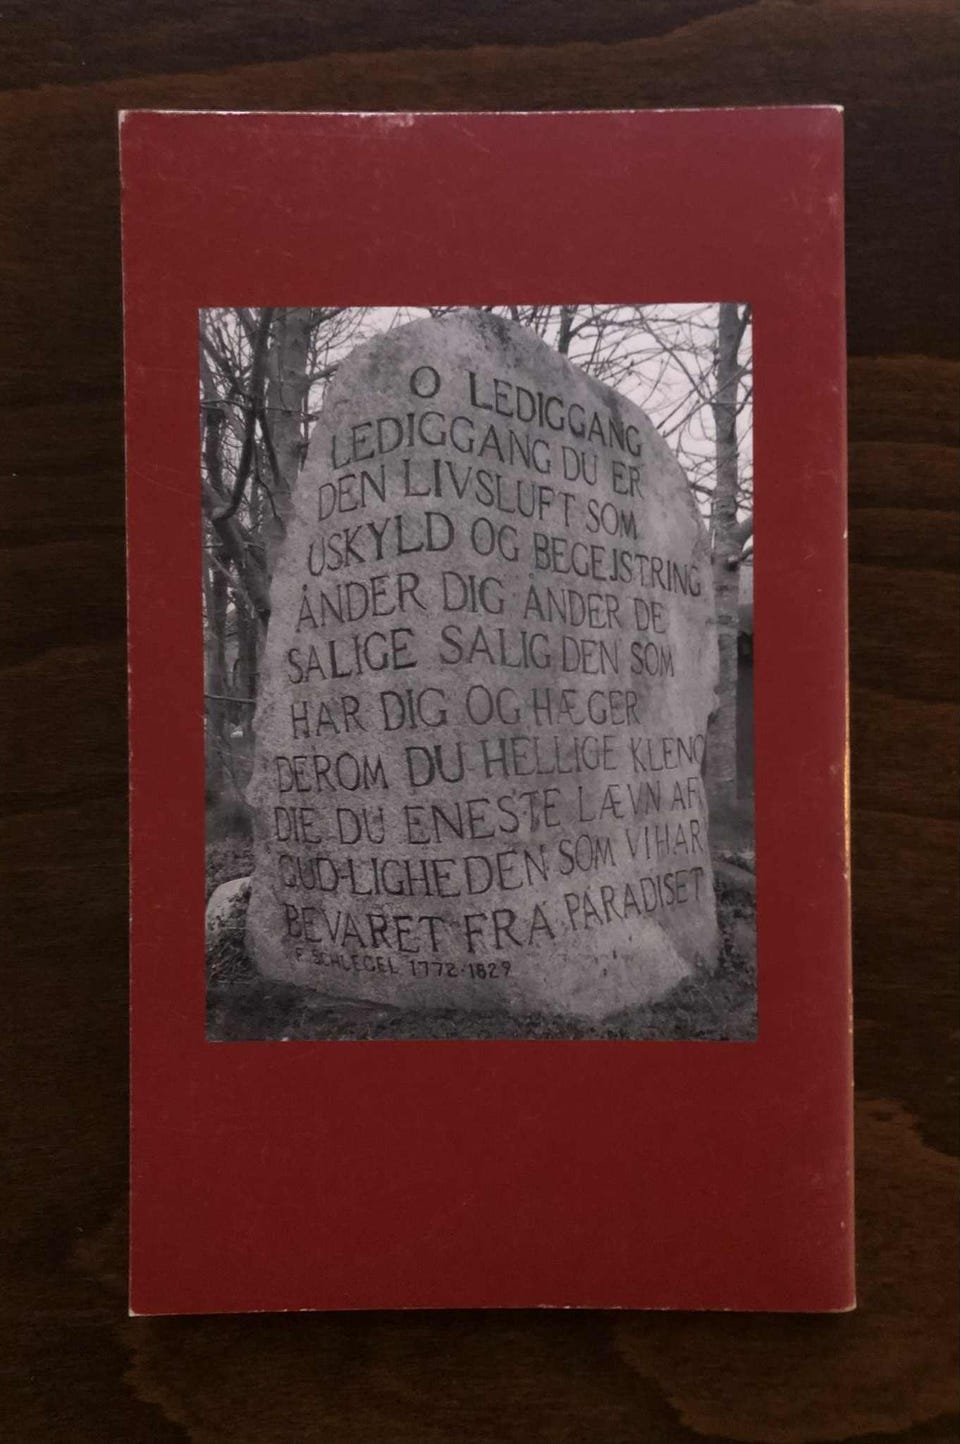 O LEDIGGANG
LEDIGGANG DU ER
DEN LIVSLUFT SOM
USKYLD OG BEGEJSTRING
ÅNDER DIG ÅNDER DE
SALIGE SALIG DEN SOM
HAR DIG OG HÆGER
DEROM DU HELLIGE KLENO
DIE DU ENESTE LÆVN AF
GUD-LIGHEDEN SOM VI HAR
BEVARET FRA PARADISET
F. SCHLEGEL 1772-1829